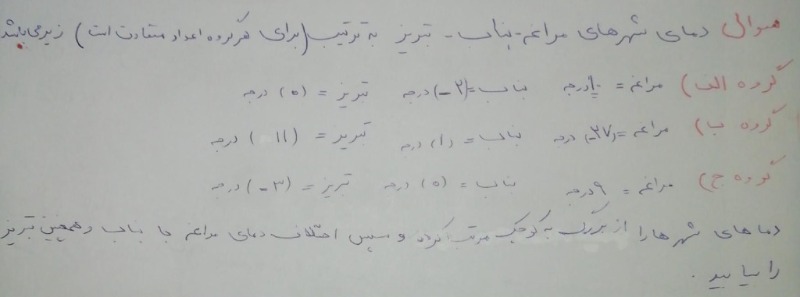 سوال دمای شهرهای مراغه - بناب - تبریز به ترتیب (برای هر گروه اعداد متفاوت است) زیر می‌باشد
گروه الف) مراغه = ۱۰ درجه بناب = (۲-) درجه تبریز = (۵) درجه
گروه ب) مراغه = (۲۷-) درجه بناب = (۱) درجه تبریز = (۱۱) درجه
گروه ج) مراغه = ۹ درجه بناب = (۵) درجه تبریز = (۳-) درجه
دماهای شهرها را از بزرگ به کوچک مرتب کرده و سپس اختلاف دمای مراغه با بناب و همچنین تبریز
را بیابید .